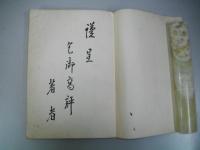 謹呈
乞御高評
著者